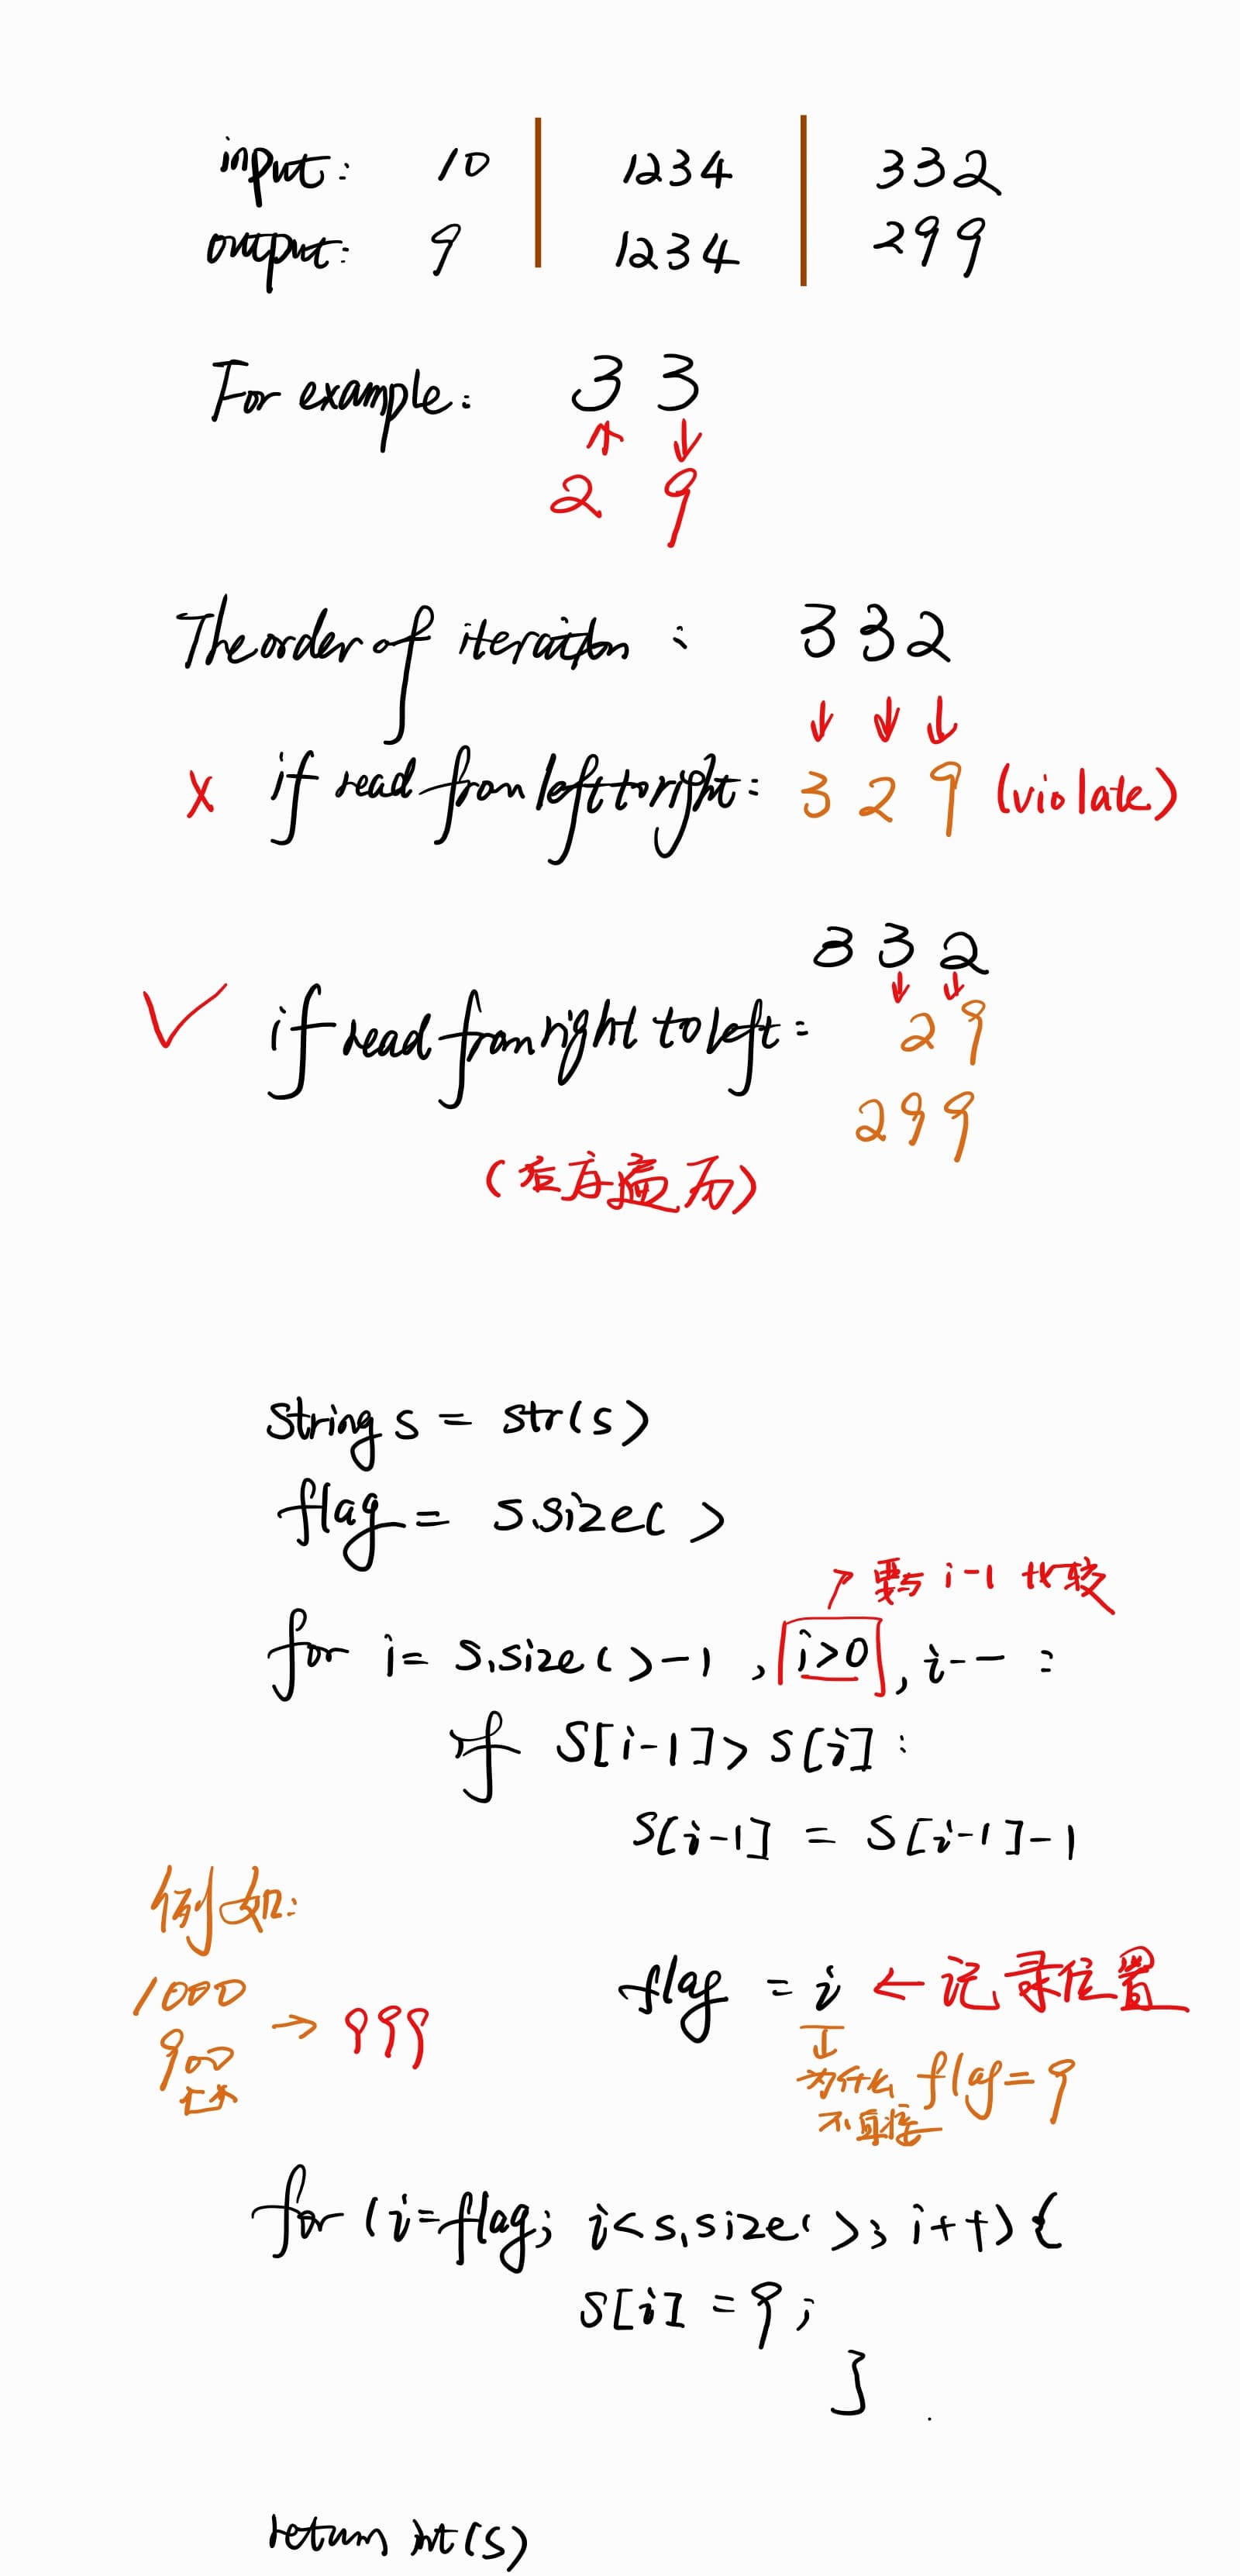 input: 10 1234 332
output: 9 1234 299
For example: 3 3
2 9
The order of iteration : 3 3 2
x if read from left to right: 3 2 9 (violate)
3 3 2
if read from right to left: 2 9
2 9 9
(后序遍历)
string s = str(s)
flag = s.size()
要与 i-1 比较
for i= s.size()-1 , i>0 , i-- :
if S[i-1]> s[i] :
S[i-1] = S[i-1]-1
例如:
1000
900 → 999
flag = i ← 记录位置
为什么 flag=9
不直接
for (i=flag; i<s.size(); i++) {
S[i] = 9;
}
return int(s)